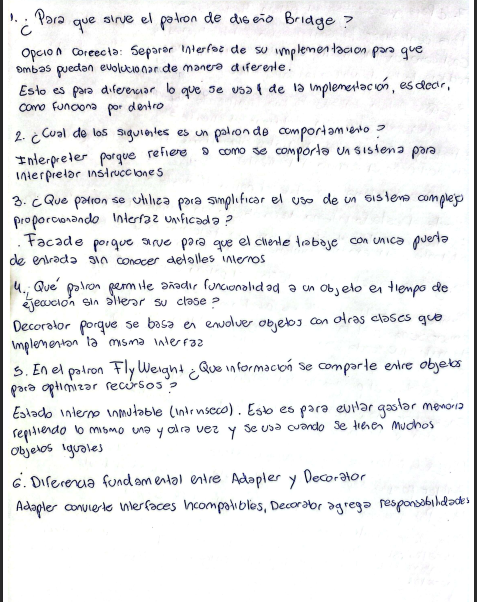 1. ¿Para que sirve el patron de diseño Bridge?
Opcion Correcta: Separar Interfaz de su implementacion para que
ambas puedan evolucionar de manera diferente.
Esto es para diferenciar lo que se usa y de la implementación, es decir,
como funciona por dentro
2. ¿Cual de los siguientes es un patron de comportamiento?
Interpreter porque refiere a como se comporta un sistema para
interpretar instrucciones
3. ¿Que patron se utiliza para simplificar el uso de un sistema complejo
proporcionando Interfaz unificada?
. Facade porque sirve para que el cliente trabaje con unica puerta
de entrada sin conocer detalles internos
4. ¿Qué patron permite añadir funcionalidad a un objeto en tiempo de
ejecución sin alterar su clase?
Decorator porque se basa en envolver objetos con otras clases que
implementan la misma interfaz
5. En el patron FlyWeight ¿Que información se comparte entre objetos
para optimizar recursos?
Estado interno inmutable (intrinseco). Esto es para evitar gastar memoria
repitiendo lo mismo una y otra vez y se usa cuando se tienen muchos
objetos iguales
6. Diferencia fundamental entre Adapter y Decorator
Adapter convierte interfaces incompatibles, Decorator agrega responsabilidades